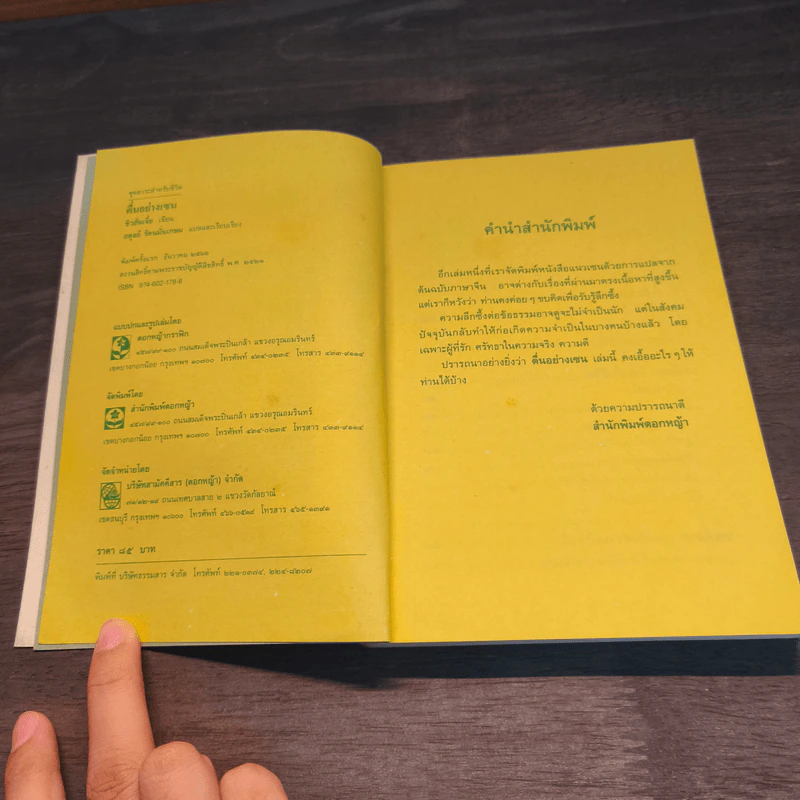 ชุดสาระสำหรับชีวิต
ตื่นอย่างเซน
ชิวสันเจี๋ย เขียน
อดุลย์ รัตนมั่นเกษม แปลและเรียบเรียง
พิมพ์ครั้งแรก ธันวาคม ๒๕๓๖
สงวนลิขสิทธิ์ตามพระราชบัญญัติลิขสิทธิ์ พ.ศ. ๒๕๒๑
ISBN 974-602-178-6
แบบปกและรูปเล่มโดย
ดอกหญ้ากราฟิก
ถนนสมเด็จพระปิ่นเกล้า แขวงอรุณอมรินทร์
เขตบางกอกน้อย กรุงเทพฯ ๑๐๗๐๐ โทรศัพท์ ๔๓๔-๐๒๓๕ โทรสาร ๔๓๓-๙๑๑๔
จัดพิมพ์โดย
สำนักพิมพ์ดอกหญ้า
ถนนสมเด็จพระปิ่นเกล้า แขวงอรุณอมรินทร์
เขตบางกอกน้อย กรุงเทพฯ ๑๐๗๐๐ โทรศัพท์ ๔๓๔-๐๒๓๕ โทรสาร ๔๓๓-๙๑๑๔
จัดจำหน่ายโดย
บริษัทสามัคคีสาร (ดอกหญ้า) จำกัด
๓๑/๑๒-๑๔ ถนนเทศบาลสาย ๒ แขวงวัดกัลยาณ์
เขตธนบุรี กรุงเทพฯ ๑๐๖๐๐ โทรศัพท์ ๔๖๖-๐๕๑๙ โทรสาร ๔๖๕-๑๓๙๑
ราคา ๘๕ บาท
พิมพ์ที่ บริษัทธรรมสาร จำกัด โทรศัพท์ ๒๒๑-๐๓๗๔, ๒๒๔-๘๒๐๗
คำนำสำนักพิมพ์
อีกเล่มหนึ่งที่เราจัดพิมพ์หนังสือแนวเซนด้วยการแปลจาก
ต้นฉบับภาษาจีน อาจต่างกับเรื่องที่ผ่านมาตรงเนื้อหาที่สูงขึ้น
แต่เราก็หวังว่า ท่านคงค่อย ๆ ขบคิดเพื่อรับรู้ลึกซึ้ง
ความลึกซึ้งต่อข้อธรรมอาจดูจะไม่จำเป็นนัก แต่ในสังคม
ปัจจุบันกลับทำให้ก่อเกิดความจำเป็นในบางคนบ้างแล้ว โดย
เฉพาะผู้ที่รัก ศรัทธาในความจริง ความดี
ปรารถนาอย่างยิ่งว่า ตื่นอย่างเซน เล่มนี้ คงเอื้ออะไร ๆ ให้
ท่านได้บ้าง
ด้วยความปรารถนาดี
สำนักพิมพ์ดอกหญ้า